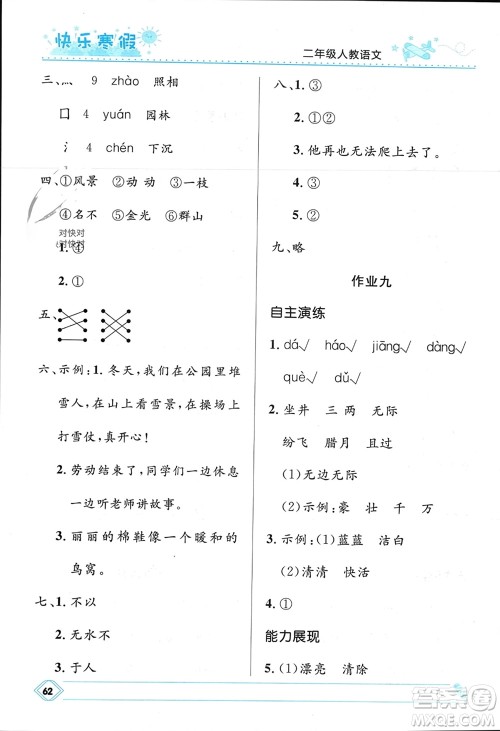 快乐寒假
二年级人教语文
三、灬 9 zhào 照相
囗 4 yuán 园林
氵 4 chén 下沉
四、①风景 ②动 动 ③一枝
④名不 ⑤金光 ⑥群山
对快对
对快对
1.④
2.①
五、
六、示例：1.冬天，我们在公园里堆
雪人，在山上看雪景，在操场上
打雪仗，真开心！
2.劳动结束了，同学们一边休息
一边听老师讲故事。
3.丽丽的棉鞋像一个暖和的
鸟窝。
七、1.不以
2.无水不
3.于人
62
八、1.①③
2.①②
3.他再也无法爬上去了。
4.②
5.①
九、略
作业九
自主演练
1. dá√ háo√ jiāng√ dàng√
què√ dǔ√
2.坐井 三 两 无际
纷飞 腊月 且过
(1)无边无际
(2)示例：豪 壮 千 万
3.示例：(1)蓝蓝 洁白
(2)清清 快活
4.①
能力展现
5.(1)漂亮 清除